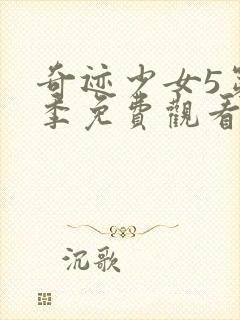 奇迹少女5第
季免費觀看
沉歌